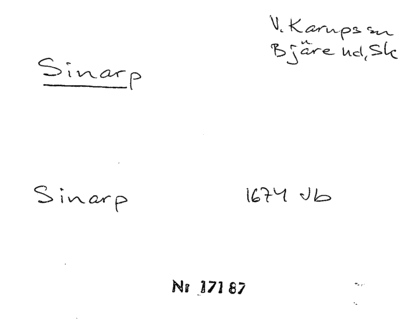 V. Karups sn
Bjäre hd, Sk
Sinarp
Sinarp 1674 Jb
Nr 17187